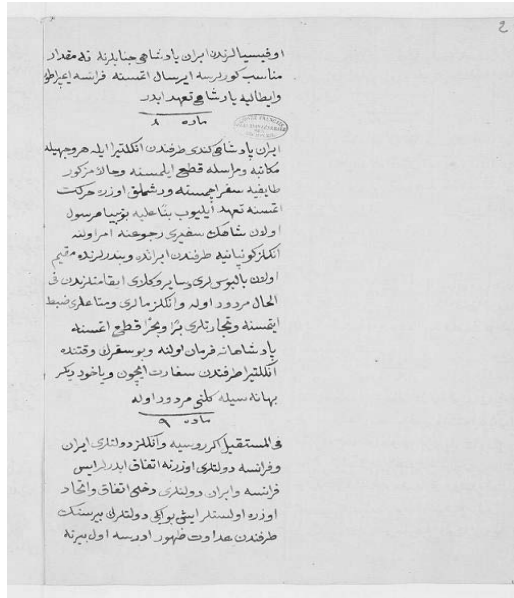 ٤
اوفیسیالرندن ایران پادشاهی جنابلرینه نه مقدار
مناسب کوررسه ایرسال اتمسنه فرانسه ایمپراطوری
وایطالیه پادشاهی تعهد ایدر
ماده ٨
ایران پادشاهی کندی طرفندن انکلتیرا ایله هر وجهیله
مکاتبه ومراسله قطع ایلمسنه وحالا مزکور
طایفیه سفر اچمسنه ودشمنلق اوزره حرکت
اتمسنه تعهد ایلیوب بناعلیه بومبیا مرسول
اولان شاهک سفیری رجوعنه امر اولنه
انکلز کونپانیه طرفندن ایرانده وبندرلرنده مقیم
اولان بالیوسلری وسایر وکلادی اقامتلرندن فی
الحال مردود اوله وانکلز مالری ومتاعلری ضبط
ایتمسنه وتجارتلری برًا وبحرًا قطع اتمسنه
پادشاهانه فرمان اولنه وبو سفرک وقتنده
انکلتیرا طرفندن سفارت ایچون ویاخود دیکر
بهانه سیله کلنی مردود اوله
ماده ٩
فی المستقبل اکر روسیه وانکلز دولتلری ایران
وفرانسه دولتلری اوزرنه اتفاق ایدرلر ایس
فرانسه وایران دولتلری دخی اتفاق واتحاد
اوزره اولسنلر ایشبو ایکی دولتلرک بیرسنک
طرفندن عداوت ظهور ادرسه اول بیرنه